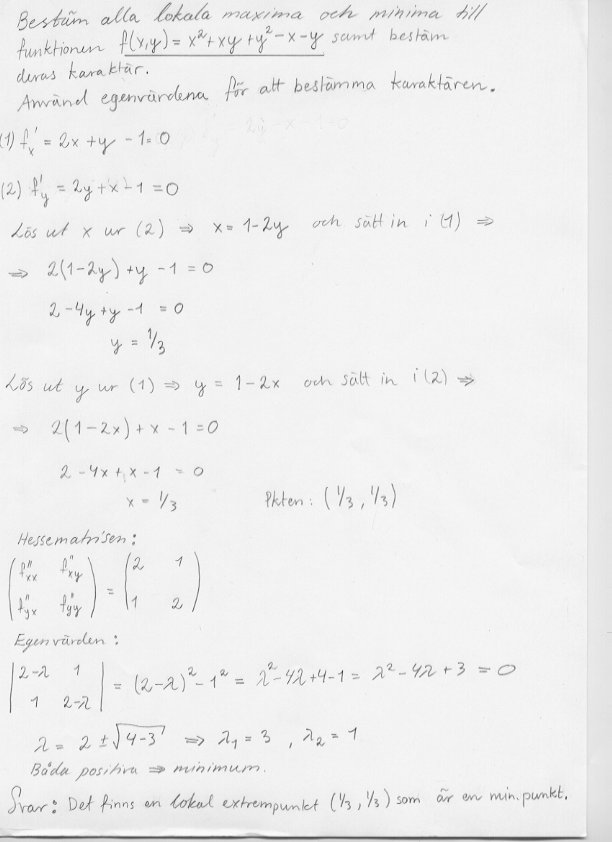 Bestäm alla lokala maxima och minima till
funktionen f(x,y) = x²+xy+y²-x-y samt bestäm
deras karaktär.
Använd egenvärdena för att bestämma karaktären.
(1) f'x = 2x+y-1=0
(2) f'y = 2y+x-1=0
Lös ut x ur (2) ⇒ x=1-2y och sätt in i (1) ⇒
⇒ 2(1-2y)+y-1=0
2-4y+y-1=0
y = 1/3
Lös ut y ur (1) ⇒ y = 1-2x och sätt in i (2) ⇒
⇒ 2(1-2x)+x-1=0
2-4x+x-1=0
x = 1/3 Pkten: (1/3, 1/3)
Hessematrisen:
(f''xx f''xy) = (2 1)
(f''yx f''yy) (1 2)
Egenvärden:
|2-λ 1| = (2-λ)²-1² = λ²-4λ+4-1 = λ²-4λ+3 = 0
|1 2-λ|
λ = 2 ± √4-3 ⇒ λ₁=3, λ₂=1
Båda positiva ⇒ minimum.
Svar: Det finns en lokal extrempunkt (1/3, 1/3) som är en min.punkt.